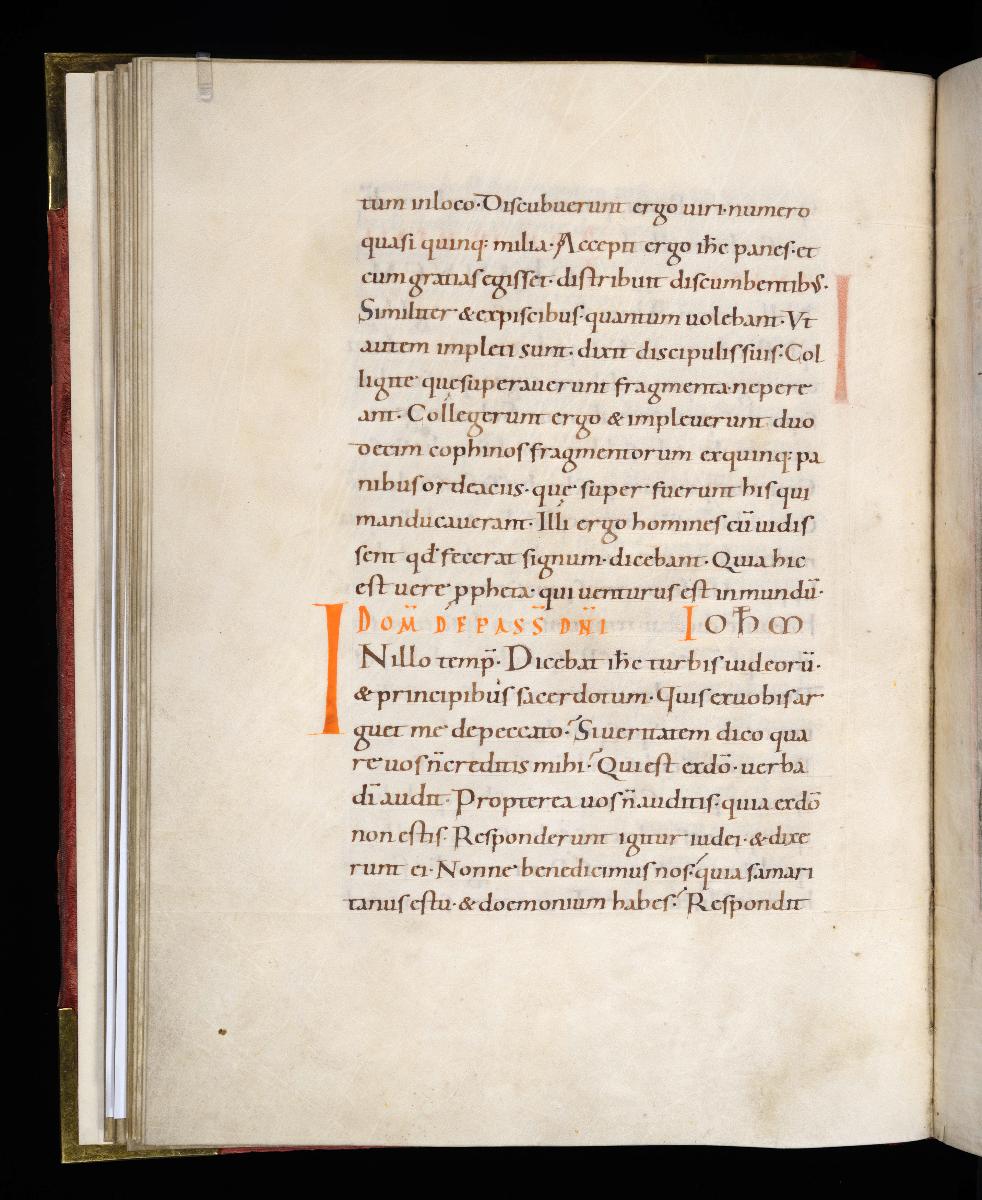 tum inloco· Discubuerunt ergo uiri· numero
quasi quinq: milia· Accepit ergo ih̅c panes· et
cum gratias egisset· distribuit discumbentibus·
Similiter & expiscibus· quantum uolebant· Vt
autem impleti sunt· dixit discipulis suis· Col
ligite que superauerunt fragmenta· nepere
ant· Collegerunt ergo & impleuerunt duo
decim cophinos fragmentorum exquinq: pa
nibus ordeaciis· que super fuerunt his qui
manducauerant· Illi ergo homines cū uidis
sent qđ fecerat signum· dicebant· Quia hic
est uere ꝓpheta· qui uenturus est in mundū·
DOM̄ DE PASS̄ DN̄I IOH̅M
INillo temp̄· Dicebat ih̅c turbis iudeorū·
& principibus sacerdotum· Quis exuobis ar
guet me depeccato· Si ueritatem dico qua
re uos n̄ creditis mihi· Qui est exdō· uerba
dī audit· Propterea uos n̄ auditis· quia exdō
non estis· Responderunt igitur iudei· & dixe
runt ei· Nonne benedicimus nos· quia samari
tanus es tu· & doemonium habes· Respondit